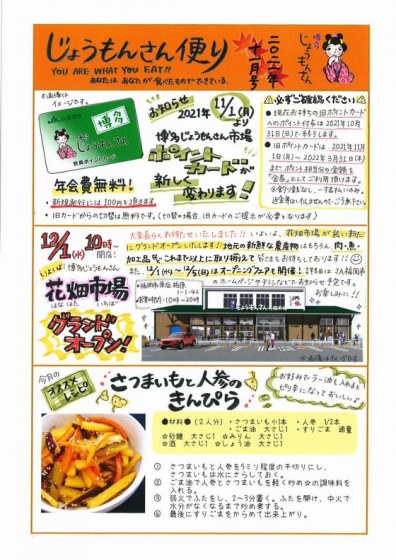 じょうもんさん便り
YOU ARE WHAT YOU EAT!!
あなたは あなたが食べたものでできている。
二〇二一年
十一月号
博多
じょうもんさん
※画像は
イメージです。
博多
じょうもんさん
会員ポイントカード
年会費無料!
お知らせ
2021年 11/1(月)
より
博多じょうもんさん市場
ポイント
カードが
新しく
変わります!
● 新規発行には100円を頂きます
● 旧カードからの切替は無料です。(切替の場合、旧カードのご提示が必要となります)
⚠必ずご確認ください⚠
● 現在お持ちの旧ポイントカード
へのポイント付与は2021年10月
31日(日)で終了します。
● 旧ポイントカードは、2021年11月
1日(月)~2022年3月31日(木)
まで ポイント相当分の金額を
“金券”としてご利用頂けます。
12/1(水) 10時~
開店!
いよいよ!
博多じょうもんさん
花畑市場
はな はた いち ば
グランド
オープン!
大変長らくお待たせいたしました!! いよいよ、花畑市場が装い新た
にグランドオープンいたします! 地元の新鮮な農産物はもちろん、肉・魚・
加工品など これまで以上に取り揃えて 皆さまをお待ちしております!!
また、12/1(水)~12/5(日)はオープニングフェアも開催!
お楽しみに!!
福岡市南区柏原
1-1-42
営業時間:10時~20時
じょうもんさん花畑市場
※画像はイメージです
今月の
オススメ
レシピ
さつまいもと人参の
きんぴら
お好みでラー油を入れると
ピリ辛になっておいしいよ♪
●材料●(2人分) ・さつまいも小1本 ・人参 1/2本
・ごま油 大さじ1 ・すりごま 適量
☆砂糖 大さじ1 ☆みりん 大さじ1
☆酒 大さじ1 ☆しょう油 大さじ1
① さつまいもと人参を5ミリ程度の千切りにし、
さつまいもは水にさらしておく。
② ごま油で人参とさつまいもを軽く炒め☆の調味料を
入れる。
③ 弱火でふたをし、2~3分置く。ふたを開け、中火で
水分がなくなるまで炒め煮する。
④ 最後にすりごまをからめて出来上がり。